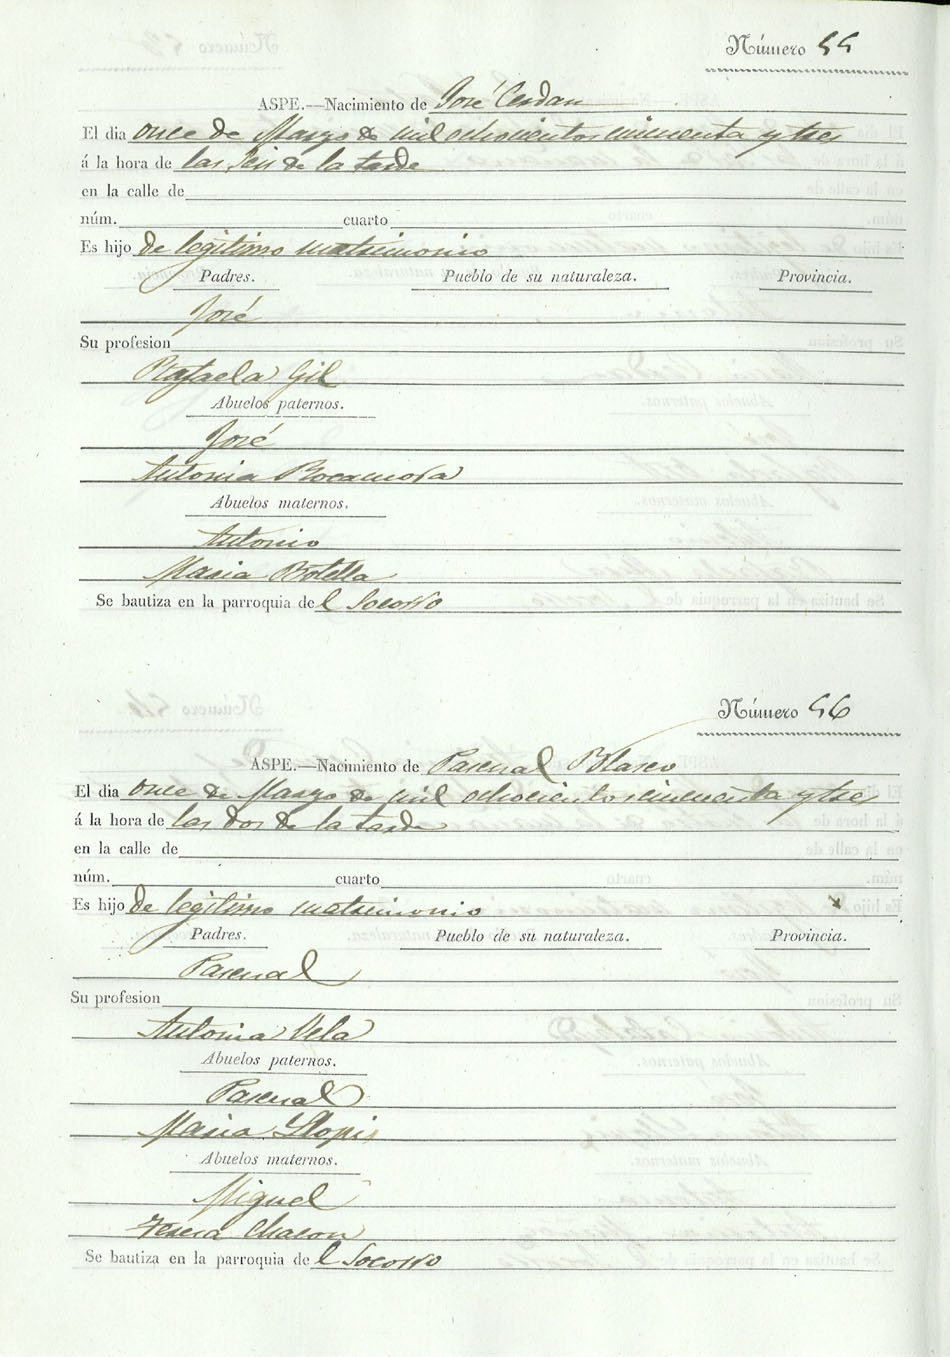 Número 55
ASPE.—Nacimiento de José Cerdan
El dia once de Marzo de mil ochocientos cincuenta y tres
á la hora de las seis de la tarde
en la calle de
núm. cuarto
Es hijo de legitimo matrimonio
Padres. Pueblo de su naturaleza. Provincia.
José
Su profesion
Rafaela Gil
Abuelos paternos.
José
Antonia Rocamora
Abuelos maternos.
Antonio
Maria Botella
Se bautiza en la parroquia del Socorro
Número 56
ASPE.—Nacimiento de Pascual Blasco
El dia once de Marzo de mil ochocientos cincuenta y tres
á la hora de las dos de la tarde
en la calle de
núm. cuarto
Es hijo de legitimo matrimonio
Padres. Pueblo de su naturaleza. Provincia.
Pascual
Su profesion
Antonia Vela
Abuelos paternos.
Pascual
Maria Llopis
Abuelos maternos.
Miguel
Teresa Chacon
Se bautiza en la parroquia del Socorro